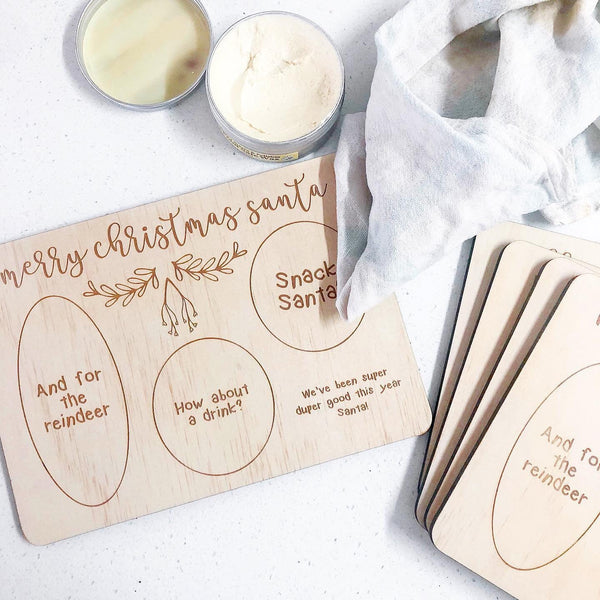 merry christmas santa
Snack
Santa
And for
the
reindeer
How about
a drink?
We've been super
duper good this year
Santa!
And for
the
reindeer